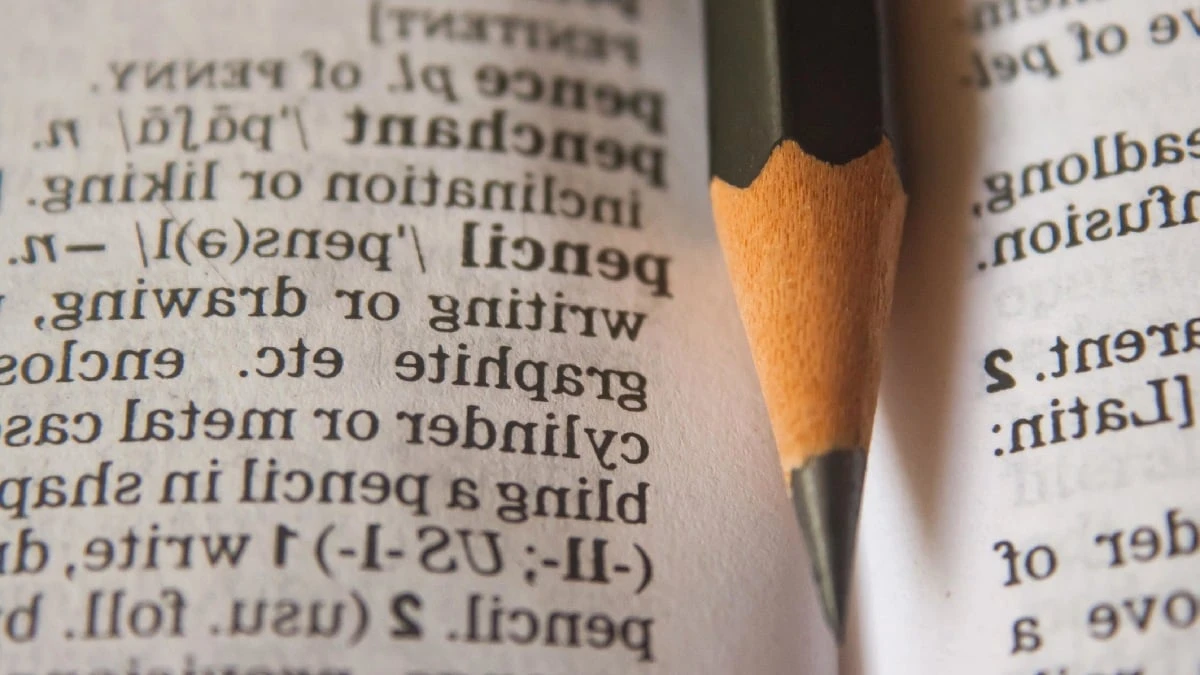 ve of pel-
adlong,
nfusion.
arent. 2
[Latin:
der of
ove a
PENITENT]
pence pl. of PENNY.
penchant /'pɑ̃ʃɑ̃/ n.
inclination or liking.
pencil /'pens(ə)l/ –n.
writing or drawing,
graphite etc. enclos
cylinder or metal cas
bling a pencil in shap
(-ll-; US -l-) 1 write, dr
pencil. 2 (usu. foll. by